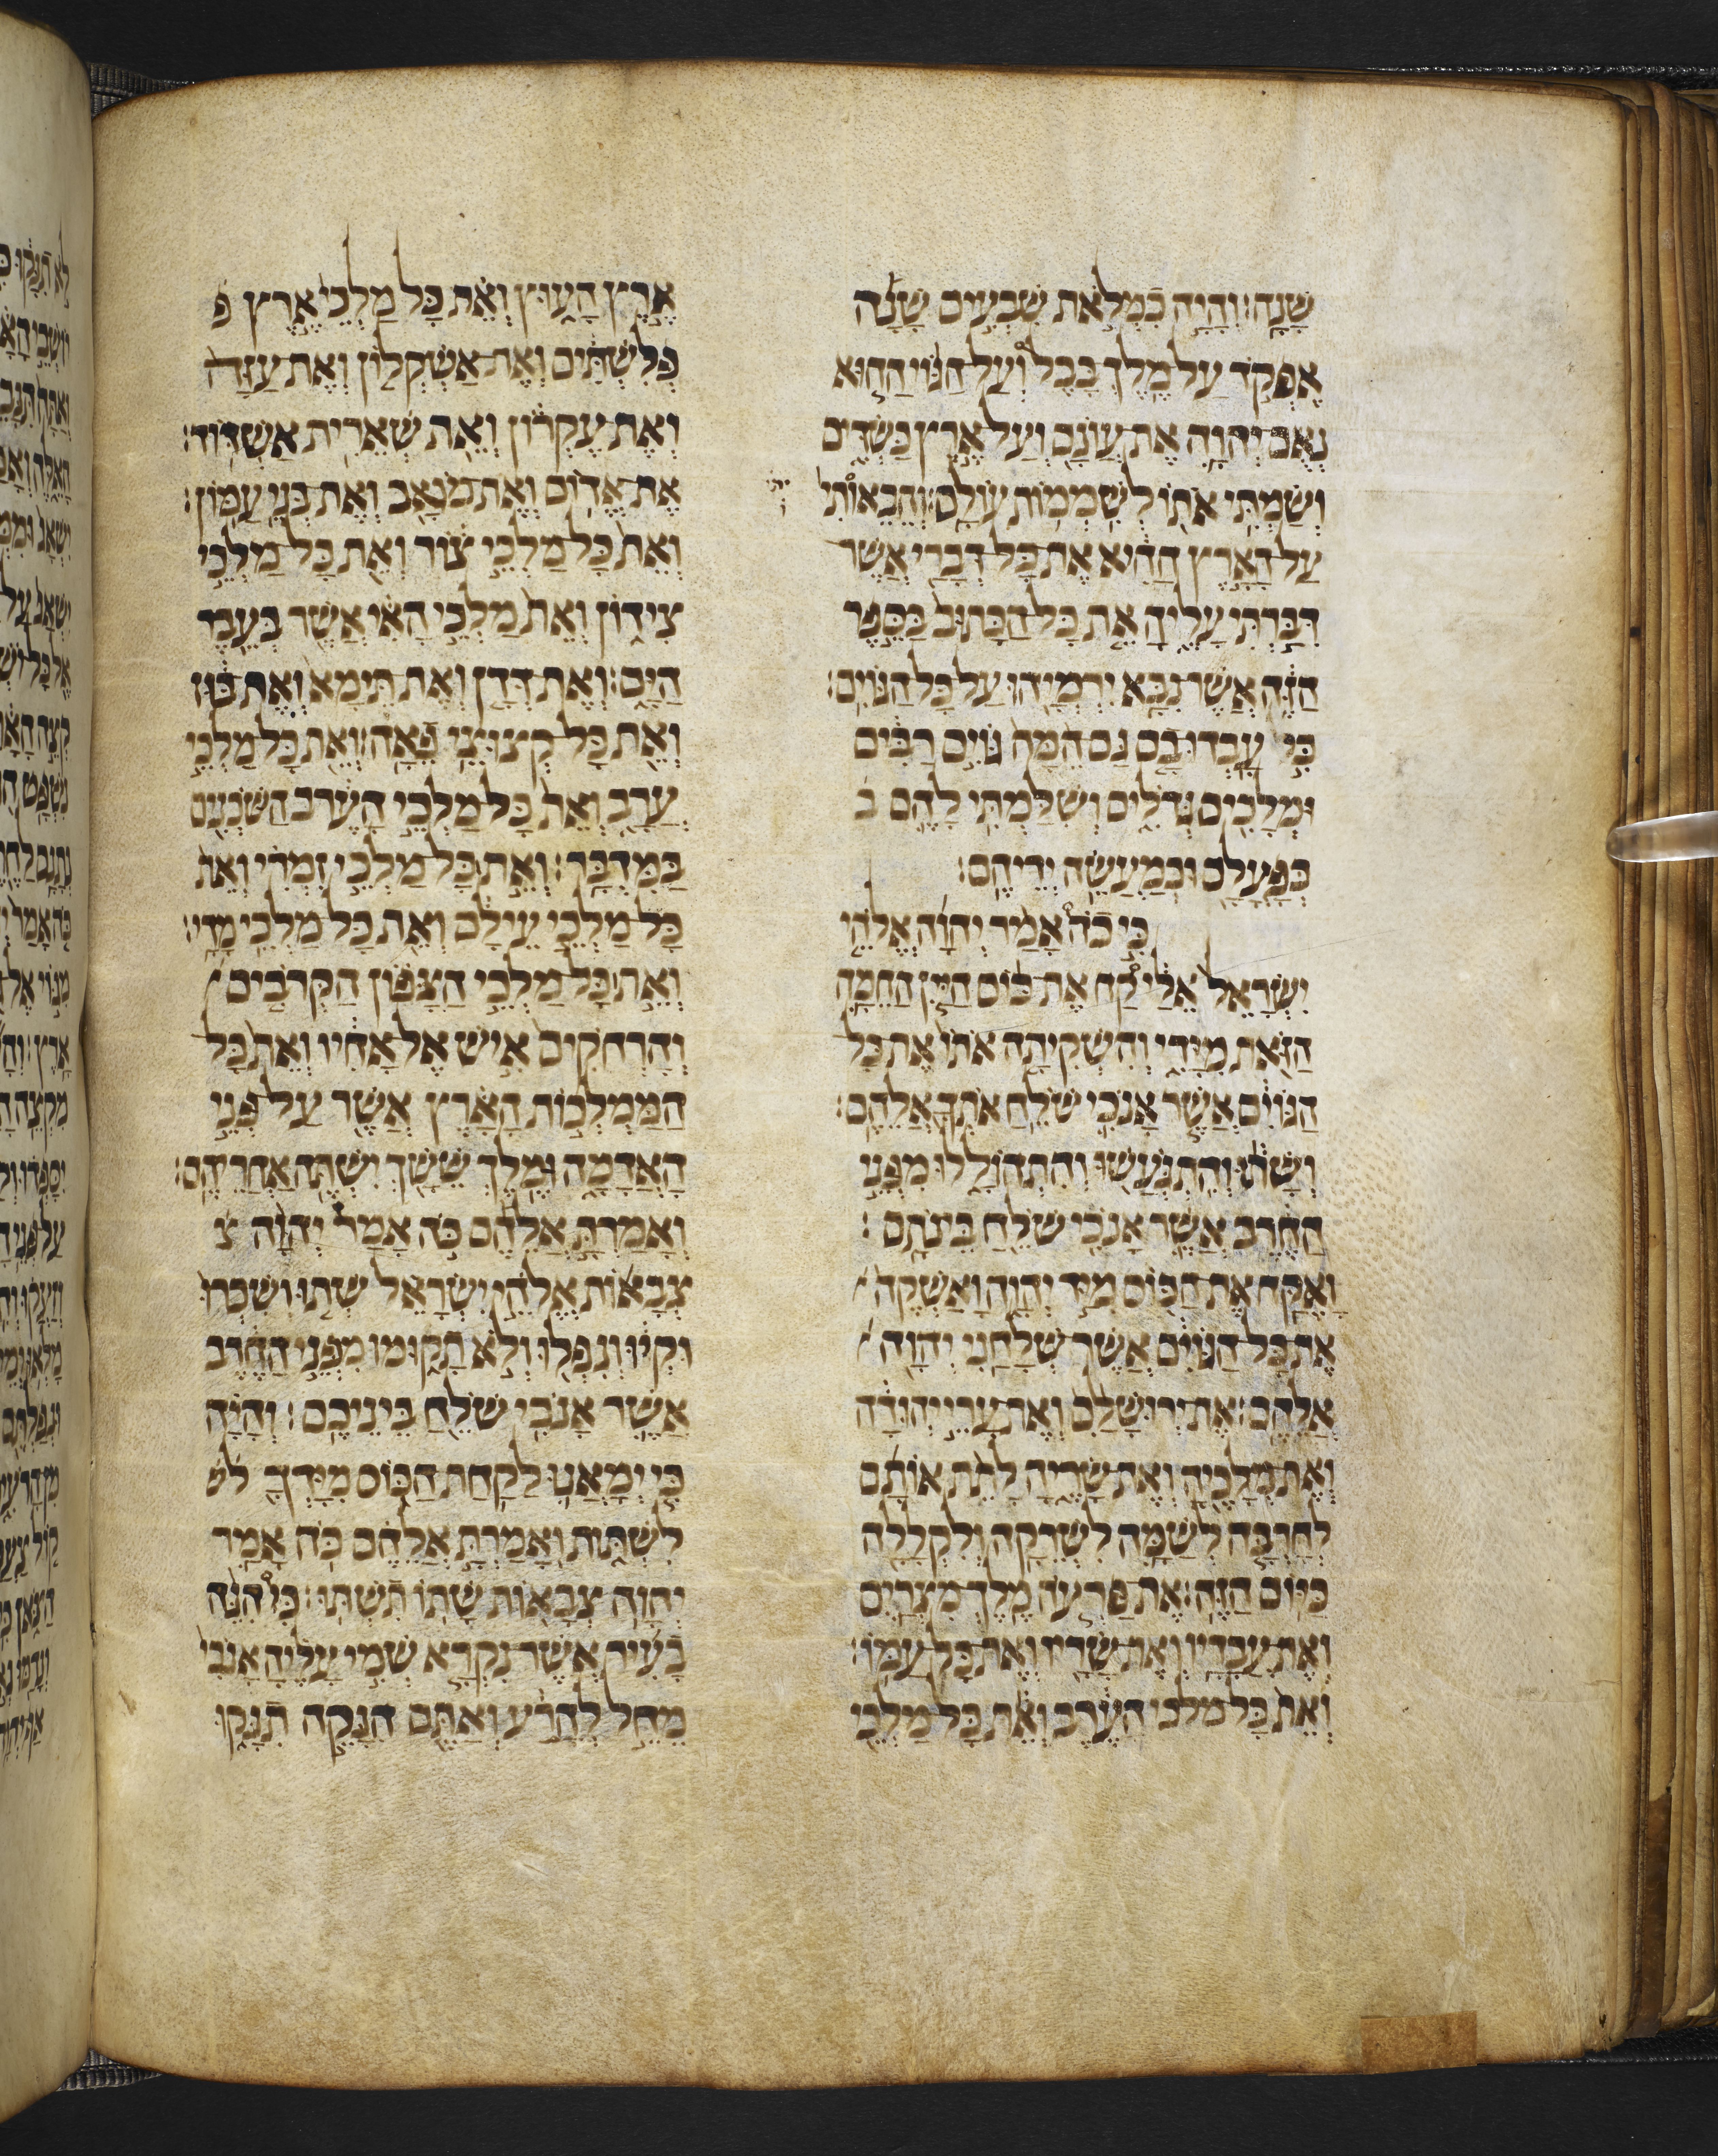 שָׁנָה׃ וְהָיָה כִמְלֹאת שִׁבְעִים שָׁנָה
אֶפְקֹד עַל מֶלֶךְ בָּבֶל וְעַל הַגּוֹי הַהוּא
נְאֻם יְהוָה אֶת עֲוֹנָם וְעַל אֶרֶץ כַּשְׂדִּים
וְשַׂמְתִּי אֹתוֹ לְשִׁמְמוֹת עוֹלָם׃ וְהֵבֵאותִי
עַל הָאָרֶץ הַהִיא אֶת כָּל דְּבָרַי אֲשֶׁר
דִּבַּרְתִּי עָלֶיהָ אֵת כָּל הַכָּתוּב בַּסֵּפֶר
הַזֶּה אֲשֶׁר נִבָּא יִרְמְיָהוּ עַל כָּל הַגּוֹיִם׃
כִּי עָבְדוּ בָם גַּם הֵמָּה גּוֹיִם רַבִּים
וּמְלָכִים גְּדֹלִים וְשִׁלַּמְתִּי לָהֶם כ
כְּפָעֳלָם וּכְמַעֲשֵׂה יְדֵיהֶם׃
כִּי כֹה אָמַר יְהוָה אֱלֹהֵי
יִשְׂרָאֵל אֵלַי קַח אֶת כּוֹס הַיַּיִן הַחֵמָה
הַזֹּאת מִיָּדִי וְהִשְׁקִיתָה אֹתוֹ אֶת כָּל
הַגּוֹיִם אֲשֶׁר אָנֹכִי שֹׁלֵחַ אֹתְךָ אֲלֵהֶם׃
וְשָׁתוּ וְהִתְגֹּעֲשׁוּ וְהִתְהֹלָלוּ מִפְּנֵי
הַחֶרֶב אֲשֶׁר אָנֹכִי שֹׁלֵחַ בֵּינֹתָם׃
וָאֶקַּח אֶת הַכּוֹס מִיַּד יְהוָה וָאַשְׁקֶה
אֶת כָּל הַגּוֹיִם אֲשֶׁר שְׁלָחַנִי יְהוָה
אֲלֵהֶם׃ אֶת יְרוּשָׁלִַם וְאֶת עָרֵי יְהוּדָה
וְאֶת מְלָכֶיהָ וְאֶת שָׂרֶיהָ לָתֵת אוֹתָם
לְחָרְבָּה לְשַׁמָּה לִשְׁרֵקָה וְלִקְלָלָה
כַּיּוֹם הַזֶּה׃ אֶת פַּרְעֹה מֶלֶךְ מִצְרַיִם
וְאֶת עֲבָדָיו וְאֶת שָׂרָיו וְאֶת כָּל עַמּוֹ׃
וְאֵת כָּל מלכי הָעֶרֶב וְאֵת כָּל מַלְכֵי
אֶרֶץ הָעוּץ וְאֵת כָּל מַלְכֵי אֶרֶץ פ
פְּלִשְׁתִּים וְאֶת אַשְׁקְלוֹן וְאֶת עַזָּה
וְאֶת עֶקְרוֹן וְאֵת שְׁאֵרִית אַשְׁדּוֹד׃
אֶת אֱדוֹם וְאֶת מוֹאָב וְאֶת בְּנֵי עַמּוֹן׃
וְאֵת כָּל מַלְכֵי צוֹר וְאֵת כָּל מַלְכֵי
צִידוֹן וְאֵת מַלְכֵי הָאִי אֲשֶׁר בְּעֵבֶר
הַיָּם׃ וְאֶת דְּדָן וְאֶת תֵּימָא וְאֶת בּוּז
וְאֵת כָּל קְצוּצֵי פֵאָה׃ וְאֵת כָּל מַלְכֵי
עֲרָב וְאֵת כָּל מַלְכֵי הָעֶרֶב הַשֹּׁכְנִים
בַּמִּדְבָּר׃ וְאֵת כָּל מַלְכֵי זִמְרִי וְאֵת
כָּל מַלְכֵי עֵילָם וְאֵת כָּל מַלְכֵי מָדָי׃
וְאֵת כָּל מַלְכֵי הַצָּפוֹן הַקְּרֹבִים
וְהָרְחֹקִים אִישׁ אֶל אָחִיו וְאֵת כָּל
הַמַּמְלְכוֹת הָאָרֶץ אֲשֶׁר עַל פְּנֵי
הָאֲדָמָה וּמֶלֶךְ שֵׁשַׁךְ יִשְׁתֶּה אַחֲרֵיהֶם׃
וְאָמַרְתָּ אֲלֵיהֶם כֹּה אָמַר יְהוָה צ
צְבָאוֹת אֱלֹהֵי יִשְׂרָאֵל שְׁתוּ וְשִׁכְרוּ
וּקְיוּ וְנִפְלוּ וְלֹא תָקוּמוּ מִפְּנֵי הַחֶרֶב
אֲשֶׁר אָנֹכִי שֹׁלֵחַ בֵּינֵיכֶם׃ וְהָיָה
כִּי יְמָאֲנוּ לָקַחַת הַכּוֹס מִיָּדְךָ לש
לִשְׁתּוֹת וְאָמַרְתָּ אֲלֵיהֶם כֹּה אָמַר
יְהוָה צְבָאוֹת שָׁתוֹ תִשְׁתּוּ׃ כִּי הִנֵּה
בָעִיר אֲשֶׁר נִקְרָא שְׁמִי עָלֶיהָ אָנֹכִי
מֵחֵל לְהָרַע וְאַתֶּם הִנָּקֵה תִנָּקוּ